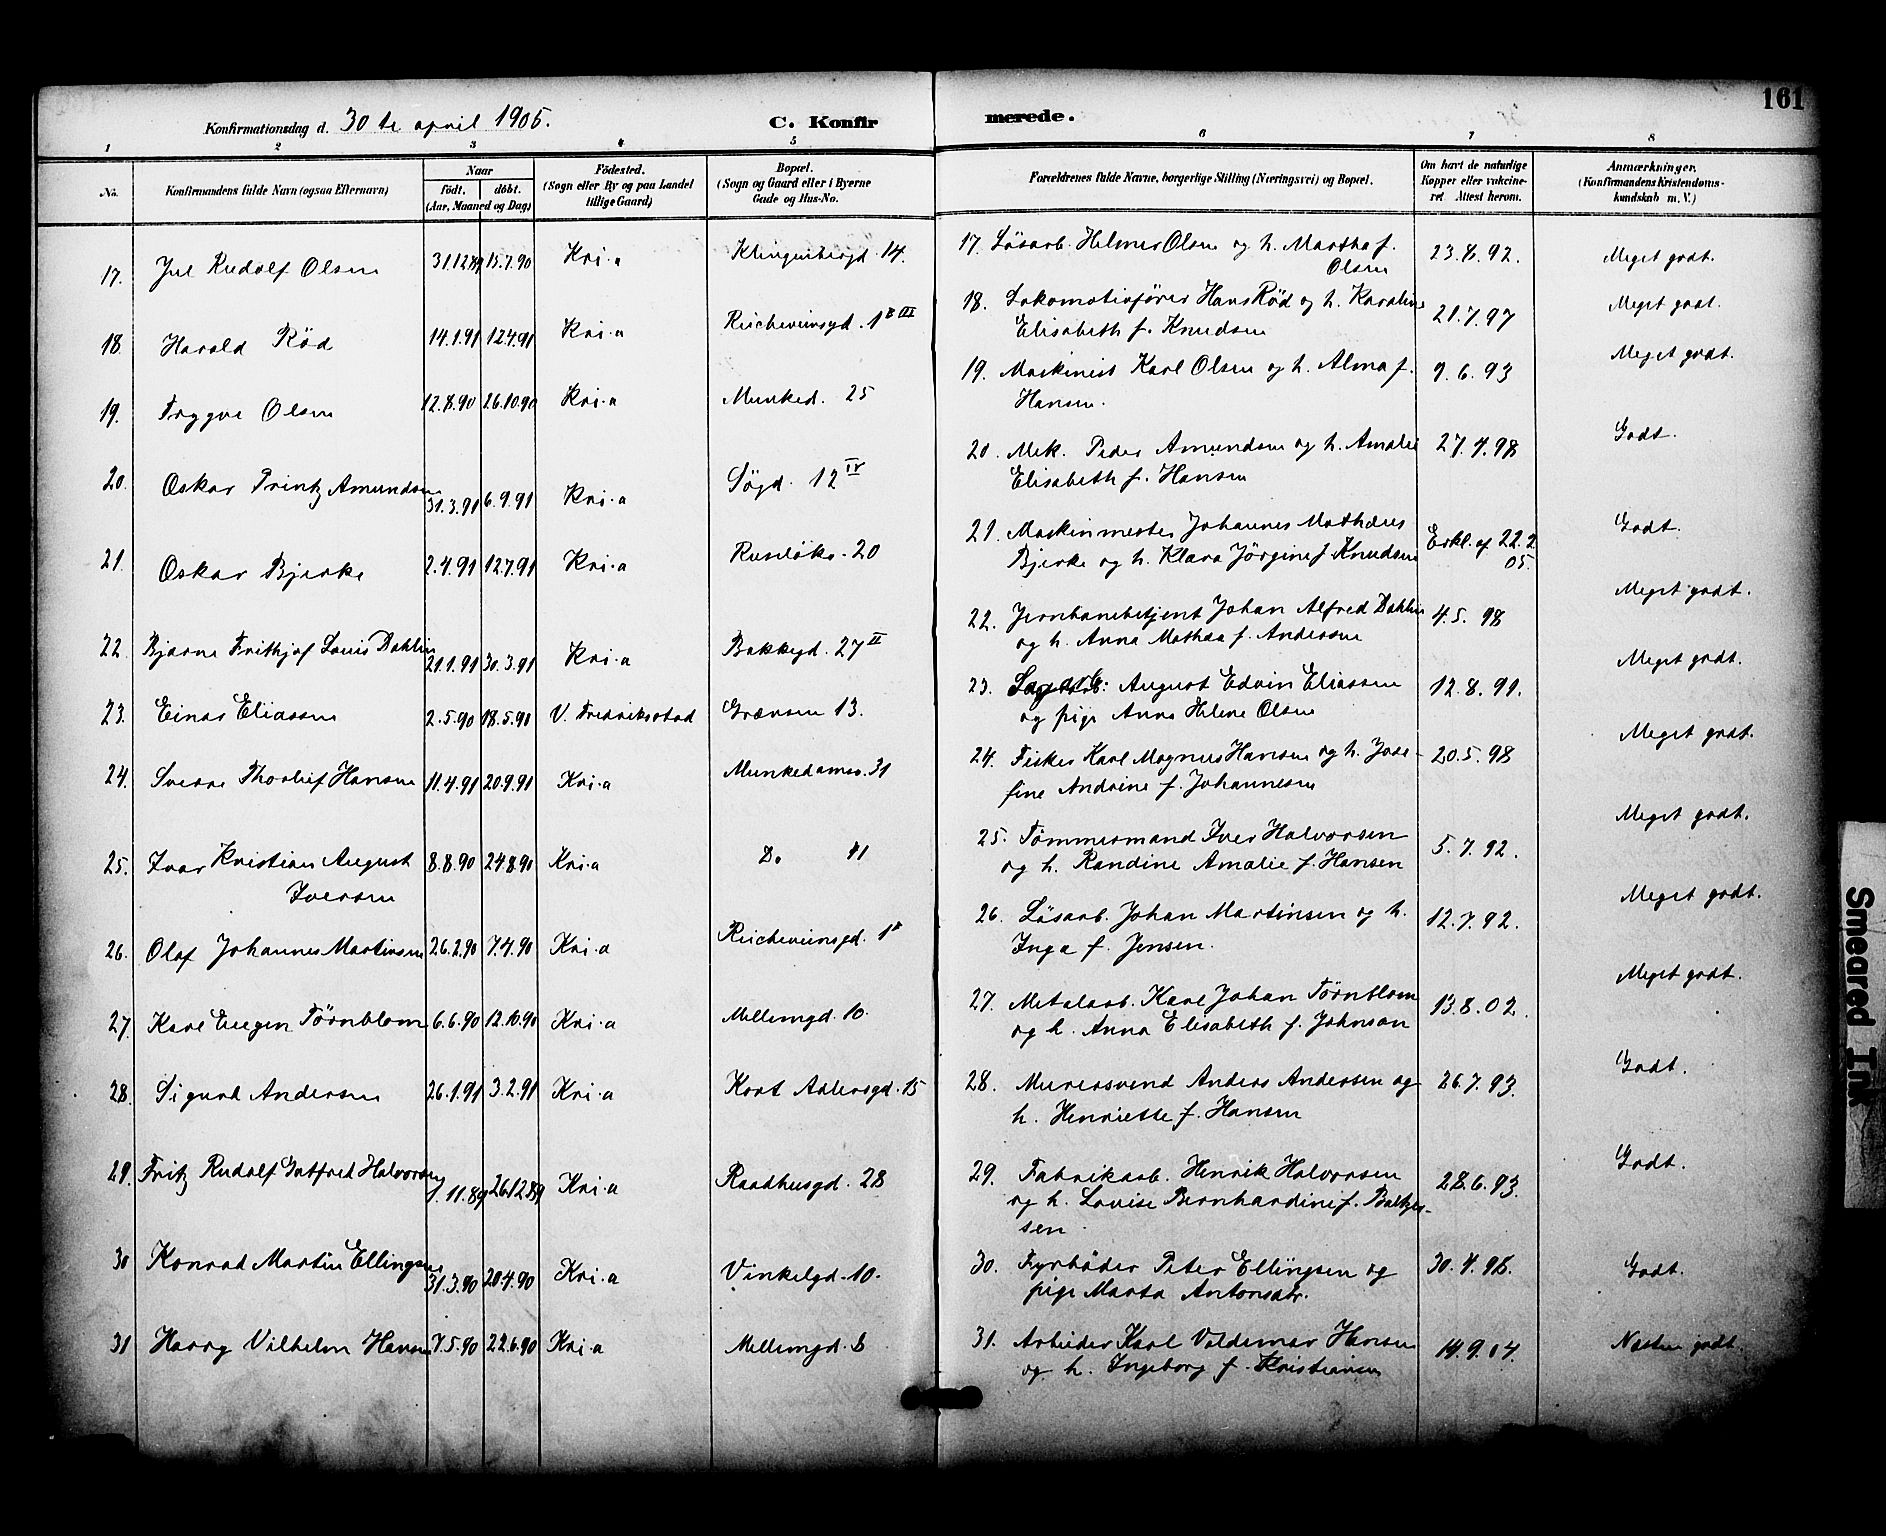 161
Konfirmationsdag d. 30 te april 1905. C. Konfirmerede.
1 2 3 4 5 6 7 8
No. Konfirmandens fulde Navn (ogsaa Efternavn) Naar født, døbt. (Aar, Maaned og Dag) Fødested. (Sogn eller By og paa Landet tillige Gaard) Bopæl. (Sogn og Gaard eller i Byerne Gade og Hus-No.) Forældrenes fulde Navne, borgerlige Stilling (Næringsvei) og Bopæl. Om havt de naturlige Kopper eller vaccineret Attest herom. Anmærkninger. (Konfirmandens Kristendomskundskab m. V.)
17. Jul Rudolf Olsen 31.12.89 15.7.90 Kri.a Klingenbergd. 14. 17. Løsarb. Helmer Olsen og h. Martha f. 23.8.92. Meget godt.
Olsen
18. Harald Rød 14.1.91 12.4.91 Kri.a Ruseløkveinsgd. 1 III 18. Lokomotivfører Hans Rød og h. Karoline 21.7.97 Meget godt.
Elisabeth f. Knudsen
19. Trygve Olsen 12.8.90 26.10.90 Kri.a Munked. 25 19. Maskinist Karl Olsen og h. Alma f. 9.6.93 Meget godt.
Hansen.
20. Oskar Printz Amundsen 31.3.91 6.9.91 Kri.a Søgd. 12 IV 20. Mek. Peder Amundsen og h. Amalie 27.7.98 Godt.
Elisabeth f. Hansen
21. Oskar Bjerke 2.4.91 12.7.91 Kri.a Ruseløkv. 20 21. Maskinmester Johannes Mathæus Erkl. af 22.2 05. Godt.
Bjerke og h. Klara Jørgine f. Knudsen
22. Bjarne Frithjof Louis Dahlin 21.1.91 30.3.91 Kri.a Bakkegd. 27 II 22. Jernbanebetjent Johan Alfred Dahlin 4.5.98 Meget godt.
og h. Anna Mathea f. Andersen
23. Einar Eliassen 2.5.90 18.5.90 V. Fredriksstad Grænsen 13. 23. August Edvin Eliassen 12.8.91. Meget godt.
og pige Anna Helene Olsen
24. Sverre Thorleif Hansen 11.4.91 20.9.91 Kri.a Munkedamsv. 31 24. Fisker Karl Magnus Hansen og h. Jose- 20.5.98 Meget godt.
fine Andrine f. Johannesen
25. Ivar Kristian August 8.8.90 24.8.90 Kri.a Do 41 25. Tømmermand Iver Halvorsen 5.7.92. Meget godt.
Iversen og h. Randine Amalie f. Hansen
26. Olaf Johannes Martinsen 26.2.90 7.4.90 Kri.a Ruseløkveinsgd. 26. Løsarb. Johan Martinsen og h. 12.7.92. Meget godt.
Inga f. Jensen.
27. Karl Eugen Törnblom 6.6.90 12.10.90 Kri.a Mellemgd. 10. 27. Metalarb. Karl Johan Törnblom 13.8.02. Meget godt.
og h. Anna Elisabeth f. Johnson
28. Sigurd Andersen 26.1.91 3.2.91 Kri.a Kort Adlersgd. 15 28. Murersvend Anders Andersen og 26.7.93. Godt.
h. Henriette f. Hansen
29. Fritz Rudolf Gotfred Halvorsen 11.89 26.12.89 Kri.a Raadhusgd. 28 29. Fabrikarb. Henrik Halvorsen 28.6.93. Godt.
og h. Lovise Bernhardine f. Baltzer-
sen
30 Konrad Martin Ellingsen 31.3.90 20.4.90 Kri.a Vinkelgd. 10. 30. Fyrbøder Peter Ellingsen og Godt.
pige Marta Antonsdtr.
31 Harry Vilhelm Hansen 7.5.90 22.6.90 Kri.a Mellemgd. 8 31. Arbeider Karl Valdemar Hansen 14.9.04. Næsten godt.
og h. Ingeborg f. Kristiansen
Smeared Ink